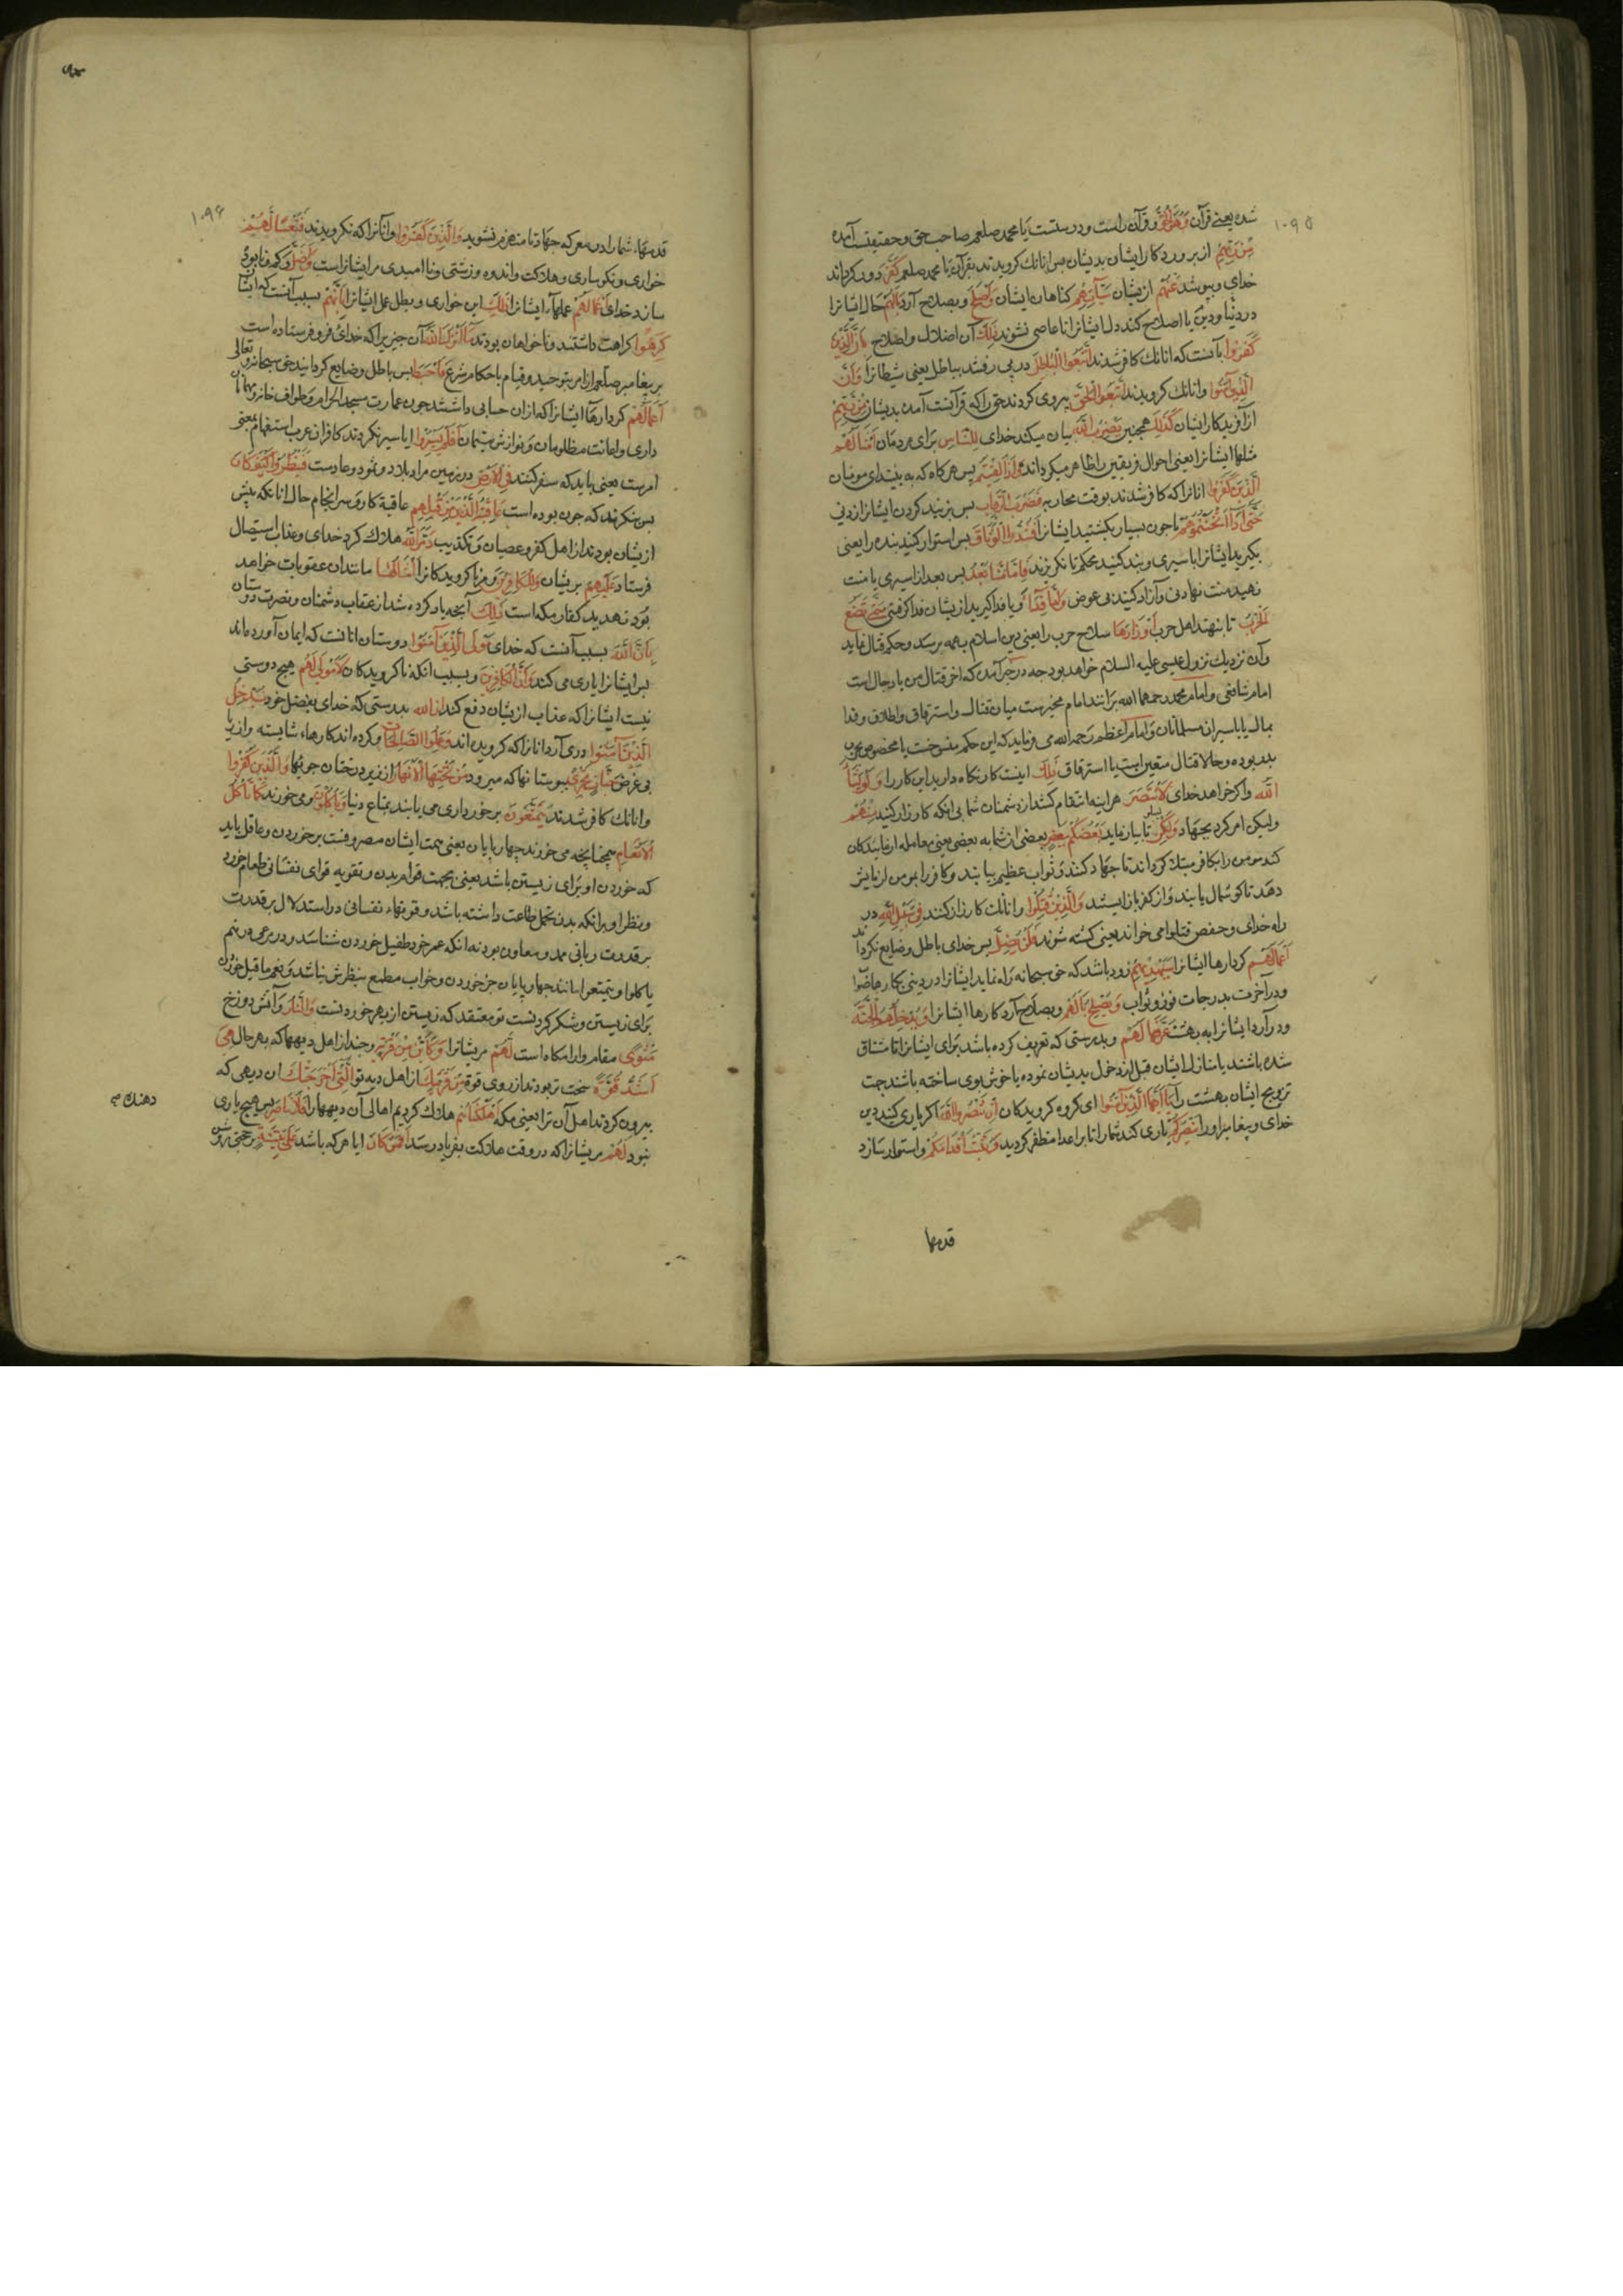 ۱۰۹۵
شده یعنی قرآن وَهُوَ الْحَقُّ و قرآن راست و درستست یا محمد صلعم صاحب حق و حقیقتست آمده
مِنْ رَبِّهِمْ از پروردکار ایشان بدیشان پس انانك کرویدند بقرآن یا محمد صلعم كَفَّرَ دور کرداند
خدای و بپوشد عَنْهُمْ ازیشان سَيِّآتِهِمْ کناهان ایشان وَاَصْلَحَ و بصلاح آرد بَالَهُمْ حال ایشانرا
در دنیا و دین یا اصلاح کند دل ایشانرا تا عاصی نشوند ذٰلِكَ آن اضلال و اصلاح بِاَنَّ الَّذِينَ
كَفَرُوا بآنست که انانك کافر شدند اتَّبَعُوا الْبَاطِلَ در پی رفتند بباطل یعنی شیطانرا وَاَنَّ
الَّذِينَ آمَنُوا و انانك کرویدند اتَّبَعُوا الْحَقَّ پیروی کردند حق را که قرآنست آمده بدیشان مِنْ رَبِّهِمْ
از آفریدکار ایشان كَذٰلِكَ همچنین يَضْرِبُ اللّٰهُ بیان میکند خدای لِلنَّاسِ برای مردمان اَمْثَالَهُمْ
مثلها ایشانرا یعنی احوال فریقین را ظاهر میکرداند فَاِذَا لَقِيتُمُ پس هرکاه که به بینید ای مومنان
الَّذِينَ كَفَرُوا انانرا که کافر شدند بوقت محاربه فَضَرْبَ الرِّقَابِ پس بزنید کردن ایشانرا زدنی
حَتّٰى اِذَا اَثْخَنْتُمُوهُمْ تا چون بسیار بکشتید ایشانرا فَشُدُّوا الْوَثَاقَ پس استوار کنید بند را یعنی
بکیرید ایشانرا باسیری و بند کنید محکم تا نکریزند فَاِمَّا مَنًّا بَعْدُ پس بعد از اسیری یا منت
نهید منت نهادنی و آزاد کنید بی عوض وَاِمَّا فِدَاءً و یا فدا کیرید ازیشان فدا کرفتنی حَتّٰى تَضَعَ
الْحَرْبُ تا بنهند اهل حرب اَوْزَارَهَا سلاح حرب را یعنی دین اسلام بهمه برسد و حکم قتال نماند
و آن نزدیك نزول عیسی علیه السلام خواهد بود چه در خبر آمده که آخر قتال من با دجال است
امام شافعی و امام محمد رحمهما الله برانند امام مخیرست میان قتال و استرقاق و اطلاق و فدا
بمال یا باسیران مسلمانان و امام اعظم رحمه الله می فرماید که این حکم منسوخست یا مخصوص بحرب
بدر بوده و حالا قتال متعین است یا استرقاق ذٰلِكَ اینست کار نکاه دارید این کار را وَلَوْ يَشَاءُ
اللّٰهُ و اکر خواهد خدای لَانْتَصَرَ هر اینه انتقام کشد از دشمنان شما بی انکه کارزار کنید مِنْهُمْ
ولیکن امر کرد بجهاد وَلٰكِنْ لِيَبْلُوَ تا بیازماید بَعْضَكُمْ بِبَعْضٍ بعضی از شما به بعضی یعنی معامله آزمایندکان
کند مومن را بکافر مبتلا کرداند تا جهاد کنند و ثواب عظیم بیابند و کافر را بمومن آزمایش
دهد تا کوشمال یابند و از کفر باز ایستند وَالَّذِينَ قُتِلُوا و انانك کارزار کنند فِي سَبِيلِ اللّٰهِ در
راه خدای و حفص قتلوا می خواند یعنی کشته شوند فَلَنْ يُضِلَّ پس خدای باطل و ضایع نکرداند
اَعْمَالَهُمْ کردارها ایشانرا سَيَهْدِيهِمْ زود باشد که حق سبحانه راه نماید ایشانرا در دینی بکارها صواب
و در آخرت بدرجات فوز و ثواب وَيُصْلِحُ بَالَهُمْ و بصلاح آرد کارها ایشانرا وَيُدْخِلُهُمُ الْجَنَّةَ
و در آرد ایشانرا به بهشت عَرَّفَهَا لَهُمْ و بدرستی که تعریف کرده باشد برای ایشانرا تا مشتاق
شده باشند یا منازل ایشان قبل از دخول بدیشان نموده یا خوش بوی ساخته باشد جهت
ترویح ایشان بهشت را يَا اَيُّهَا الَّذِينَ آمَنُوا ای کروه کرویدکان اِنْ تَنْصُرُوا اللّٰهَ اکر یاری کنید دین
خدای و پیغامبر او را يَنْصُرْكُمْ یاری کند شما را تا بر اعدا مظفر کردید وَيُثَبِّتْ اَقْدَامَكُمْ و استوار سازد
قدمها
۱۰۹۶
قدمهاء شما را در معرکه جهاد تا منهزم نشوید وَالَّذِينَ كَفَرُوا و آنانرا که نکرویدند فَتَعْسًا لَهُمْ
خواری و نکوساری و هلاکت و اندوه و زشتی و ناامیدی مر ایشانراست وَاَضَلَّ و کم و نابود
سازد خدای اَعْمَالَهُمْ عملهاء ایشانرا ذٰلِكَ این خواری و بطل عمل ایشانرا بِاَنَّهُمْ بسبب آنست که ایشان
كَرِهُوا کراهت داشتند و ناخواهان بودند مَا اَنْزَلَ اللّٰهُ آن چیزی را که خدای فرو فرستاده است
بر پیغامبر صلعم از امر بتوحید و قیام باحکام شرع فَاَحْبَطَ پس باطل و ضایع کردانید حق سبحانه و تعالی
اَعْمَالَهُمْ کردارهاء ایشانرا که ازان حسابی داشتند چون عمارت مسجد الحرام و طواف خانه و مهمان
داری و اعانت مظلومان و نوازش یتیمان اَفَلَمْ يَسِيرُوا ایا سیر نکردند کافران عرب استفهام بمعنی
امرست یعنی باید که سفر کنند فِي الْاَرْضِ در زمین مراد بلاد و ثمود و عادست فَيَنْظُرُوا كَيْفَ كَانَ
پس بنکرند که چون بوده است عَاقِبَةُ الَّذِينَ مِنْ قَبْلِهِمْ عاقبة کار و سرانجام حال انانکه پیش
ازیشان بودند از اهل کفر و عصیان و تکذیب دَمَّرَ اللّٰهُ هلاك کرد خدای و عذاب استیصال
فرستاد عَلَيْهِمْ بریشان وَلِلْكَافِرِينَ و مر ناکرویدکانرا اَمْثَالُهَا مانند آن عقوبات خواهد
بود تهدید کفار مکه است ذٰلِكَ آنچه یاد کرده شد از عقاب دشمنان و نصرت دوستان
بِاَنَّ اللّٰهَ بسبب آنست که خدای مَوْلَى الَّذِينَ آمَنُوا دوستان انانست که ایمان آورده اند
پس ایشانرا یاری می کند وَاَنَّ الْكَافِرِينَ و بسبب انکه ناکرویدکان لَا مَوْلٰى لَهُمْ هیچ دوستی
نیست ایشانرا که عذاب ازیشان دفع کند اِنَّ اللّٰهَ بدرستی که خدای بفضل خود يُدْخِلُ
الَّذِينَ آمَنُوا در می آرد انانرا که کرویده اند وَعَمِلُوا الصَّالِحَاتِ و کرده اند کارهاء شایسته و از ریا
بی غرض جَنَّاتٍ تَجْرِي ببوستانها که میرود مِنْ تَحْتِهَا الْاَنْهَارُ از زیر درختان جویها وَالَّذِينَ كَفَرُوا
و انانك کافر شدند يَتَمَتَّعُونَ برخورداری می یابند بمتاع دنیا وَيَاْكُلُونَ و می خورند كَمَا تَاْكُلُ
الْاَنْعَامُ همچنانچه می خورند چهارپایان یعنی همت ایشان مصروفست برخوردن و عاقل باید
که خوردن او برای زیستن باشد یعنی بجهت قوام بدن و تقویه قوای نفسانی طعام خورد
و نظر او برانکه بدن تحمل طاعت داشته باشد و قوتهاء نفسانی در استدلال بر قدرت
بر قدرت ربانی ممد و معاون بود نه انکه عمر خود طفیل خوردن شناسد و در مرعی ذرهم
یاکلوا و یتمتعوا مانند چهارپایان جز خوردن و خواب مطمح نظرش نباشد و نعم ما قیل خوردن
برای زیستن و شکر کردنست تو معتقد که زیستن از بهر خوردنست وَالنَّارُ و آتش دوزخ
مَثْوًى مقام و ارامکاه است لَهُمْ مر ایشانرا وَكَاَيِّنْ مِنْ قَرْيَةٍ و چند از اهل دیهها که بهر حال هِيَ
اَشَدُّ قُوَّةً سخت تر بودند از روی قوة مِنْ قَرْيَتِكَ از اهل دیه تو الَّتِي اَخْرَجَتْكَ ان دیهی که
بیرون کردند اهل آن ترا یعنی مکه اَهْلَكْنَاهُمْ هلاك کردیم اهالی آن دیهها را فَلَا نَاصِرَ پس هیچ یاری
دهنده
نبود لَهُمْ مر ایشانرا که در وقت هلاکت بفریاد رسد اَفَمَنْ كَانَ ایا هر که باشد عَلٰى بَيِّنَةٍ بر حجتی روشن